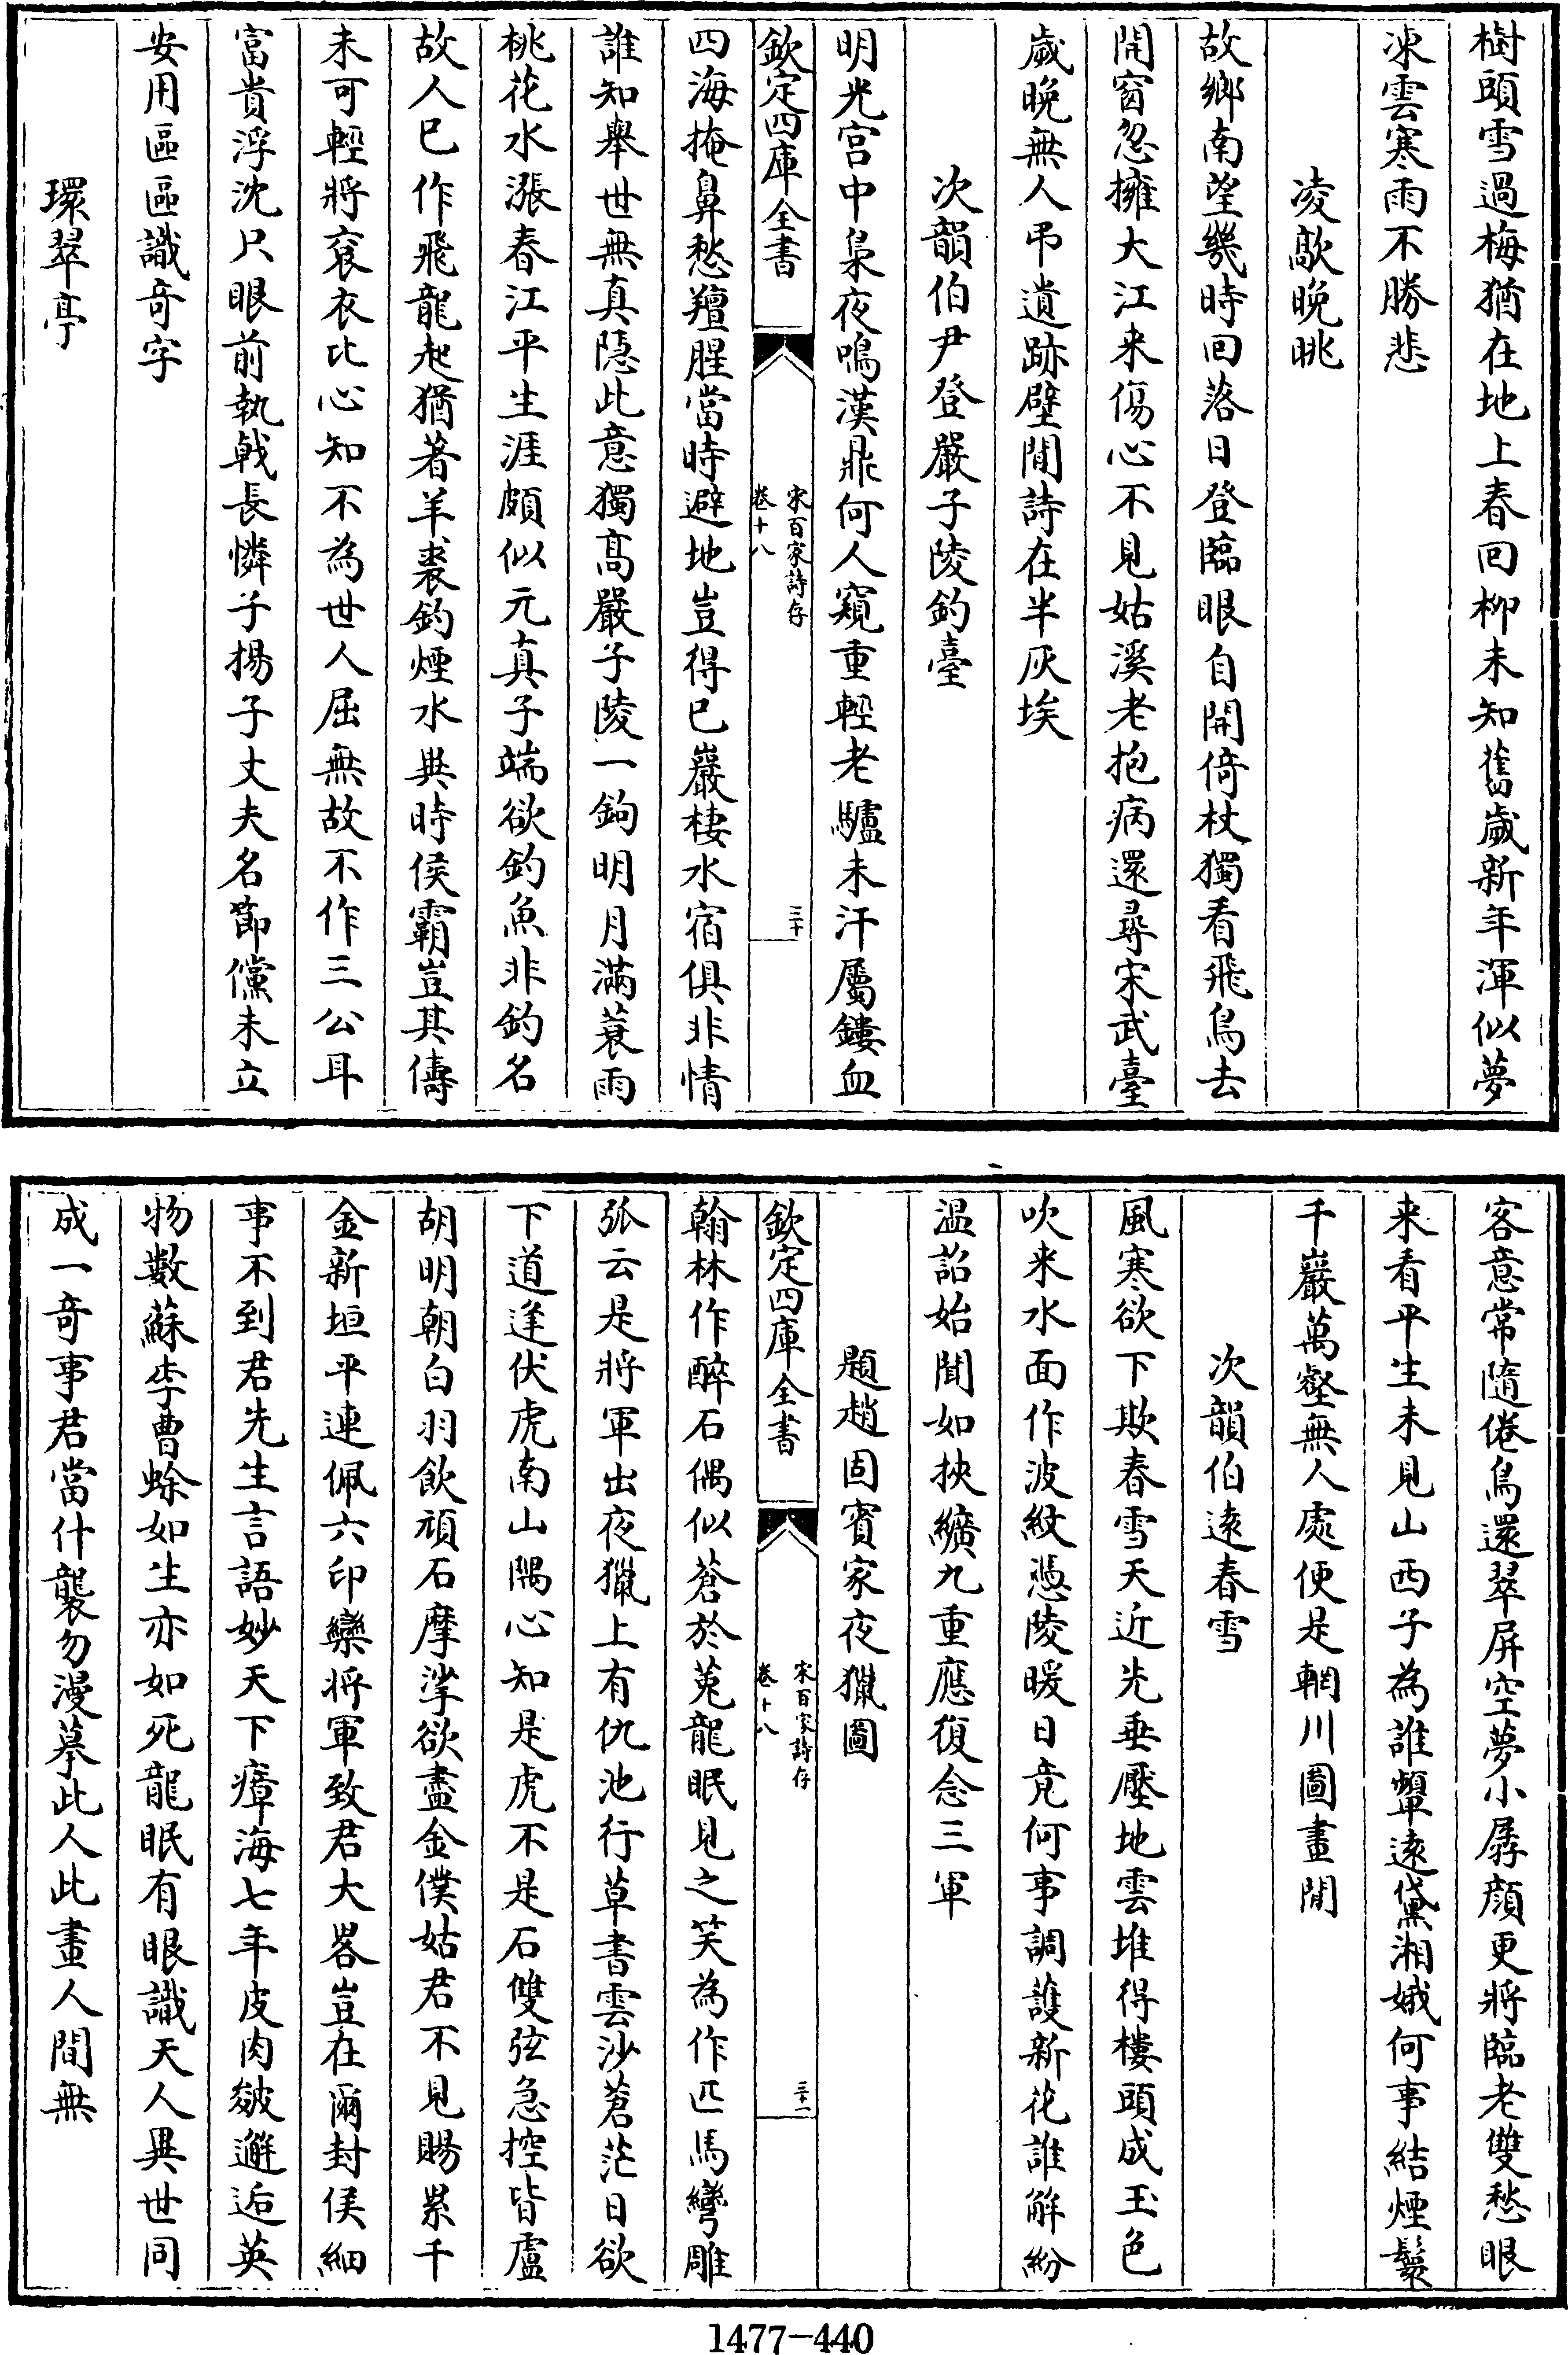 樹頭雪過梅猶在地上春回柳未知舊歲新年渾似夢
凍雲寒雨不勝悲
凌歊晚眺
故鄉南望幾時回落日登臨眼自開倚杖獨看飛鳥去
開窗忽擁大江来傷心不見姑溪老抱病還尋宋武臺
歲晚無人弔遺跡壁閒詩在半灰埃
次韻伯尹登嚴子陵釣臺
明光宫中梟夜鳴漢鼎何人窺重輕老驢未汗屬鏤血
欽定四庫全書
宋百家詩存
卷十八
三十
四海掩鼻愁羶腥當時避地豈得已巖棲水宿俱非情
誰知舉世無真隱此意獨髙嚴子陵一鉤明月滿蓑雨
桃花水漲春江平生涯頗似元真子端欲釣魚非釣名
故人已作飛龍起猶著羊裘釣煙水與時侯霸豈其儔
未可輕將衮衣比心知不為世人屈無故不作三公耳
富貴浮沈只眼前執戟長憐子揚子丈夫名節儻未立
安用區區識奇字
環翠亭
客意常隨倦鳥還翠屏空夢小孱顔更將臨老雙愁眼
来看平生未見山西子為誰顰遠黛湘娥何事結煙鬟
千巖萬壑無人處便是輞川圖畫閒
次韻伯逺春雪
風寒欲下欺春雪天近先垂壓地雲堆得樓頭成玉色
吹来水面作波紋憑陵暖日竟何事調䕶新花誰解紛
温詔始聞如挾纊九重應復念三軍
題趙固賓家夜獵圖
欽定四庫全書
宋百家詩存
卷十八
三十一
翰林作醉石偶似蒼於菟龍眠見之笑為作匹馬彎雕
弧云是將軍出夜獵上有仇池行草書雲沙蒼茫日欲
下道逢伏虎南山隅心知是虎不是石雙弦急控皆盧
胡明朝白羽飲頑石摩挲欲盡金僕姑君不見賜累千
金新垣平連佩六印欒將軍致君大畧豈在爾封侯細
事不到君先生言語妙天下瘴海七年皮肉皴邂逅英
物數蘇李曹蜍如生亦如死龍眠有眼識天人異世同
成一奇事君當什襲勿漫摹此人此畫人間無
1477-440